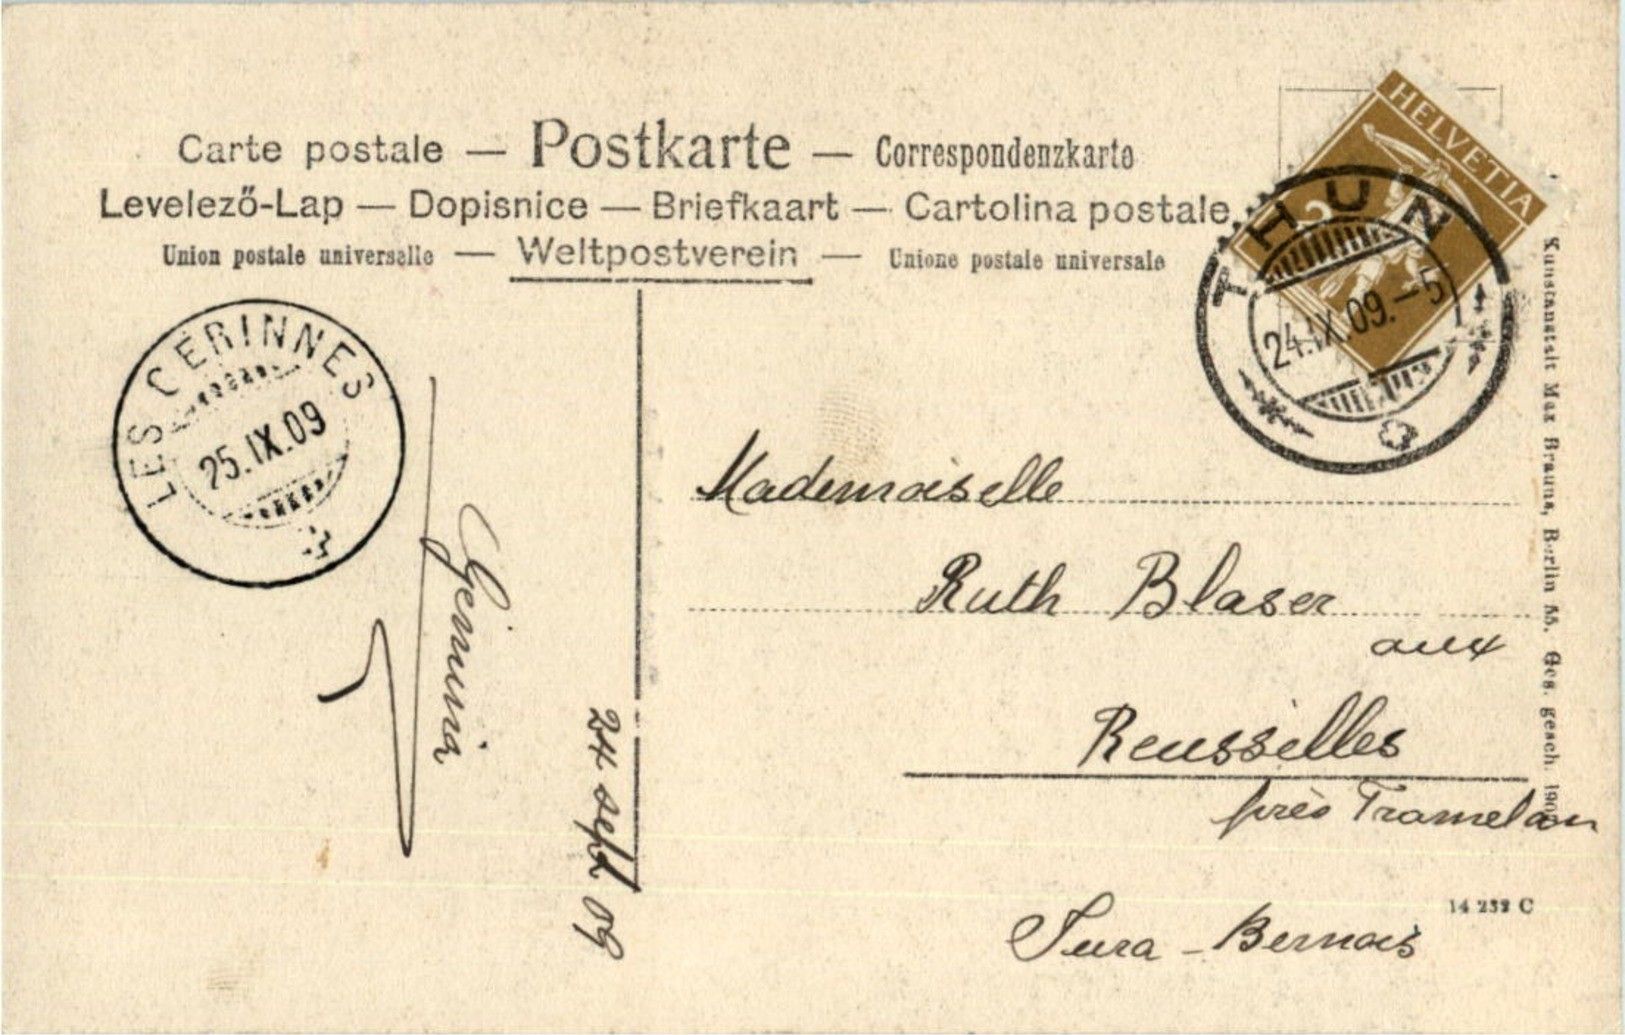 Carte postale — Postkarte — Correspondenzkarte
Levelező-Lap — Dopisnice — Briefkaart — Cartolina postale
Union postale universelle — Weltpostverein — Unione postale universale
HELVETIA
2
THUN
24.IX.09.-5
LES CERINNES
25.IX.09
24 sept 09
Mademoiselle
Ruth Blaser
aux
Reussilles
près Tramelan
Jura - Bernois
Kunstanstalt Max Brauns, Berlin 55. Ges. gesch.
14 232 C